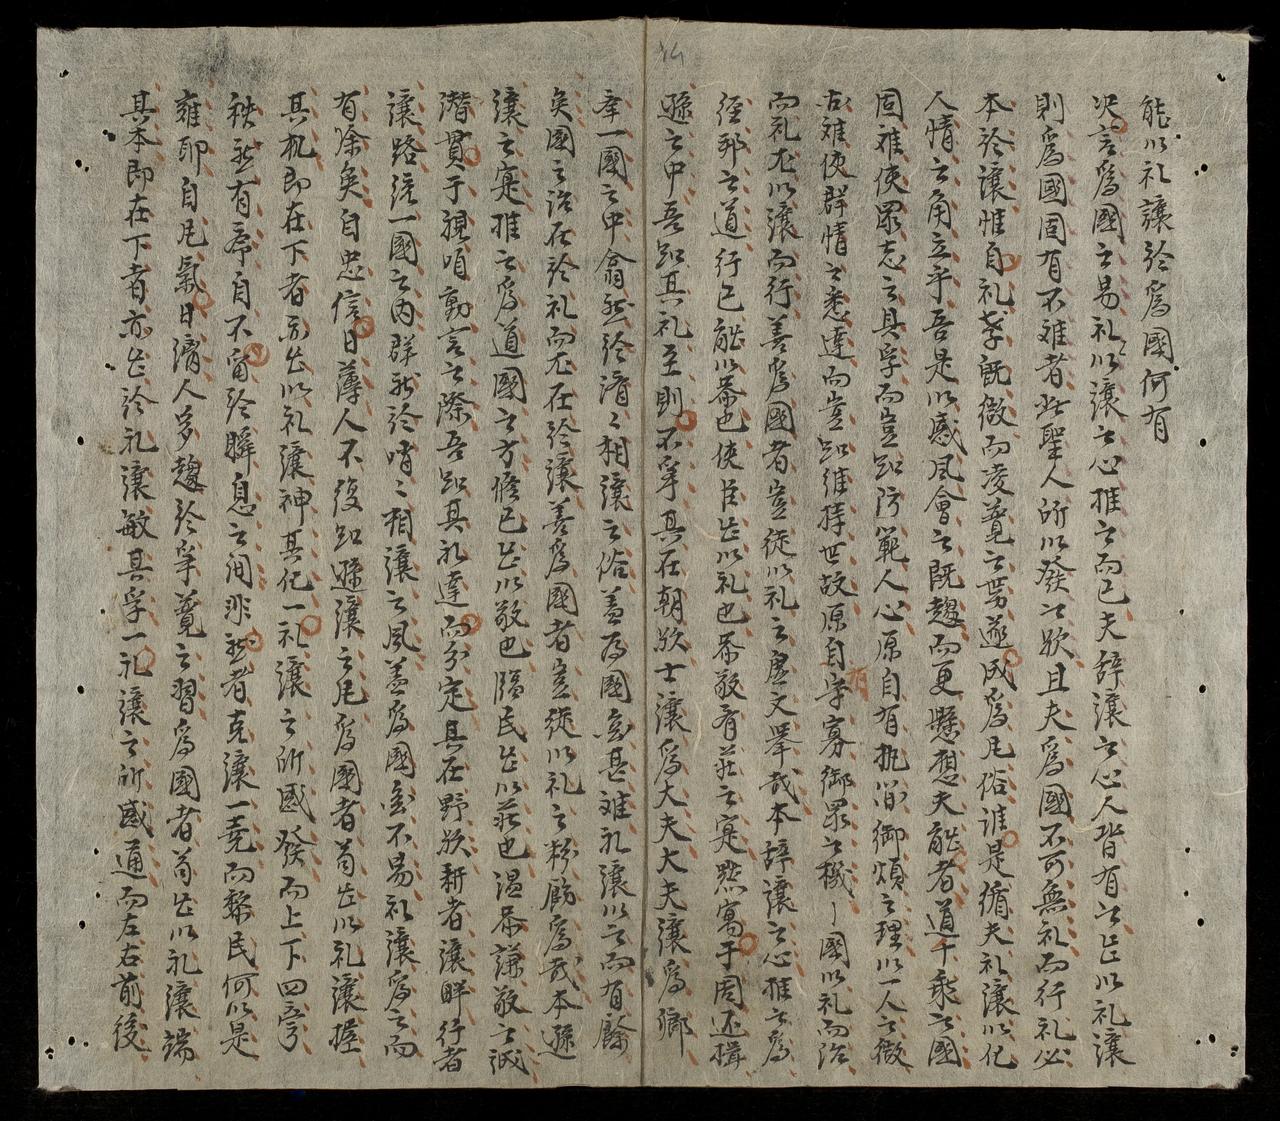 能以礼讓於爲國何有
决言爲國之易礼以讓之心推之而已夫辞讓之心人皆有之㠯以礼讓
則爲國固有不难者此聖人所以發此欤且夫爲國不可無礼而行礼必
本於讓惟自礼孝既微而凌竟之势遂成爲凡俗谁是循夫礼讓以化
人情之角立乎吾是以感風會之既趨而更懸想夫能者道千乘之國
固难使眾志之具孚而豈知防範人心原自有執簡御煩之理以一人之微
古难使群情之悉達而豈知維持世故原自有字寡御眾之機國以礼而治
而礼尤以讓而行善爲國者豈徒以礼之虚文舉哉本辞讓之心推之爲
經邦之道行己能以恭也使民㠯以礼也恭敬有莊之寔點寓于周还揖
遜之中吾知其礼至則不爭其在朝欤士讓爲大夫大夫讓爲卿
牽一國之中翕然於濟〻相讓之俗盖为國寔甚难礼讓以之而有餘
矣國之治在於礼而尤在於讓善爲國者豈徒以礼之粉飭爲哉本遜
讓之寔推之爲道國之方脩己㠯以敬也臨民㠯以莊也温恭謙敬之誠
潜貫于視咱動言之際吾知其礼達而分定其在野欤耕者讓畔行者
讓路統一國之内群然於哨〻相讓之風盖爲國寔不易礼讓爲之而
有馀矣自忠信日薄人不復知遜讓之凡爲國者苟㠯以礼讓握
其机即在下者亦㠯以礼讓神其化一礼讓之所感發而上下四旁
秩然有序自不甯於瞬息之间非然者克讓一堯而黎民何以是
雍即自凡氣日漓人多趨於爭竟之習爲國者苟㠯以礼讓端
其本即在下者亦㠯於礼讓敏其孚一礼讓之所感通而左右前後